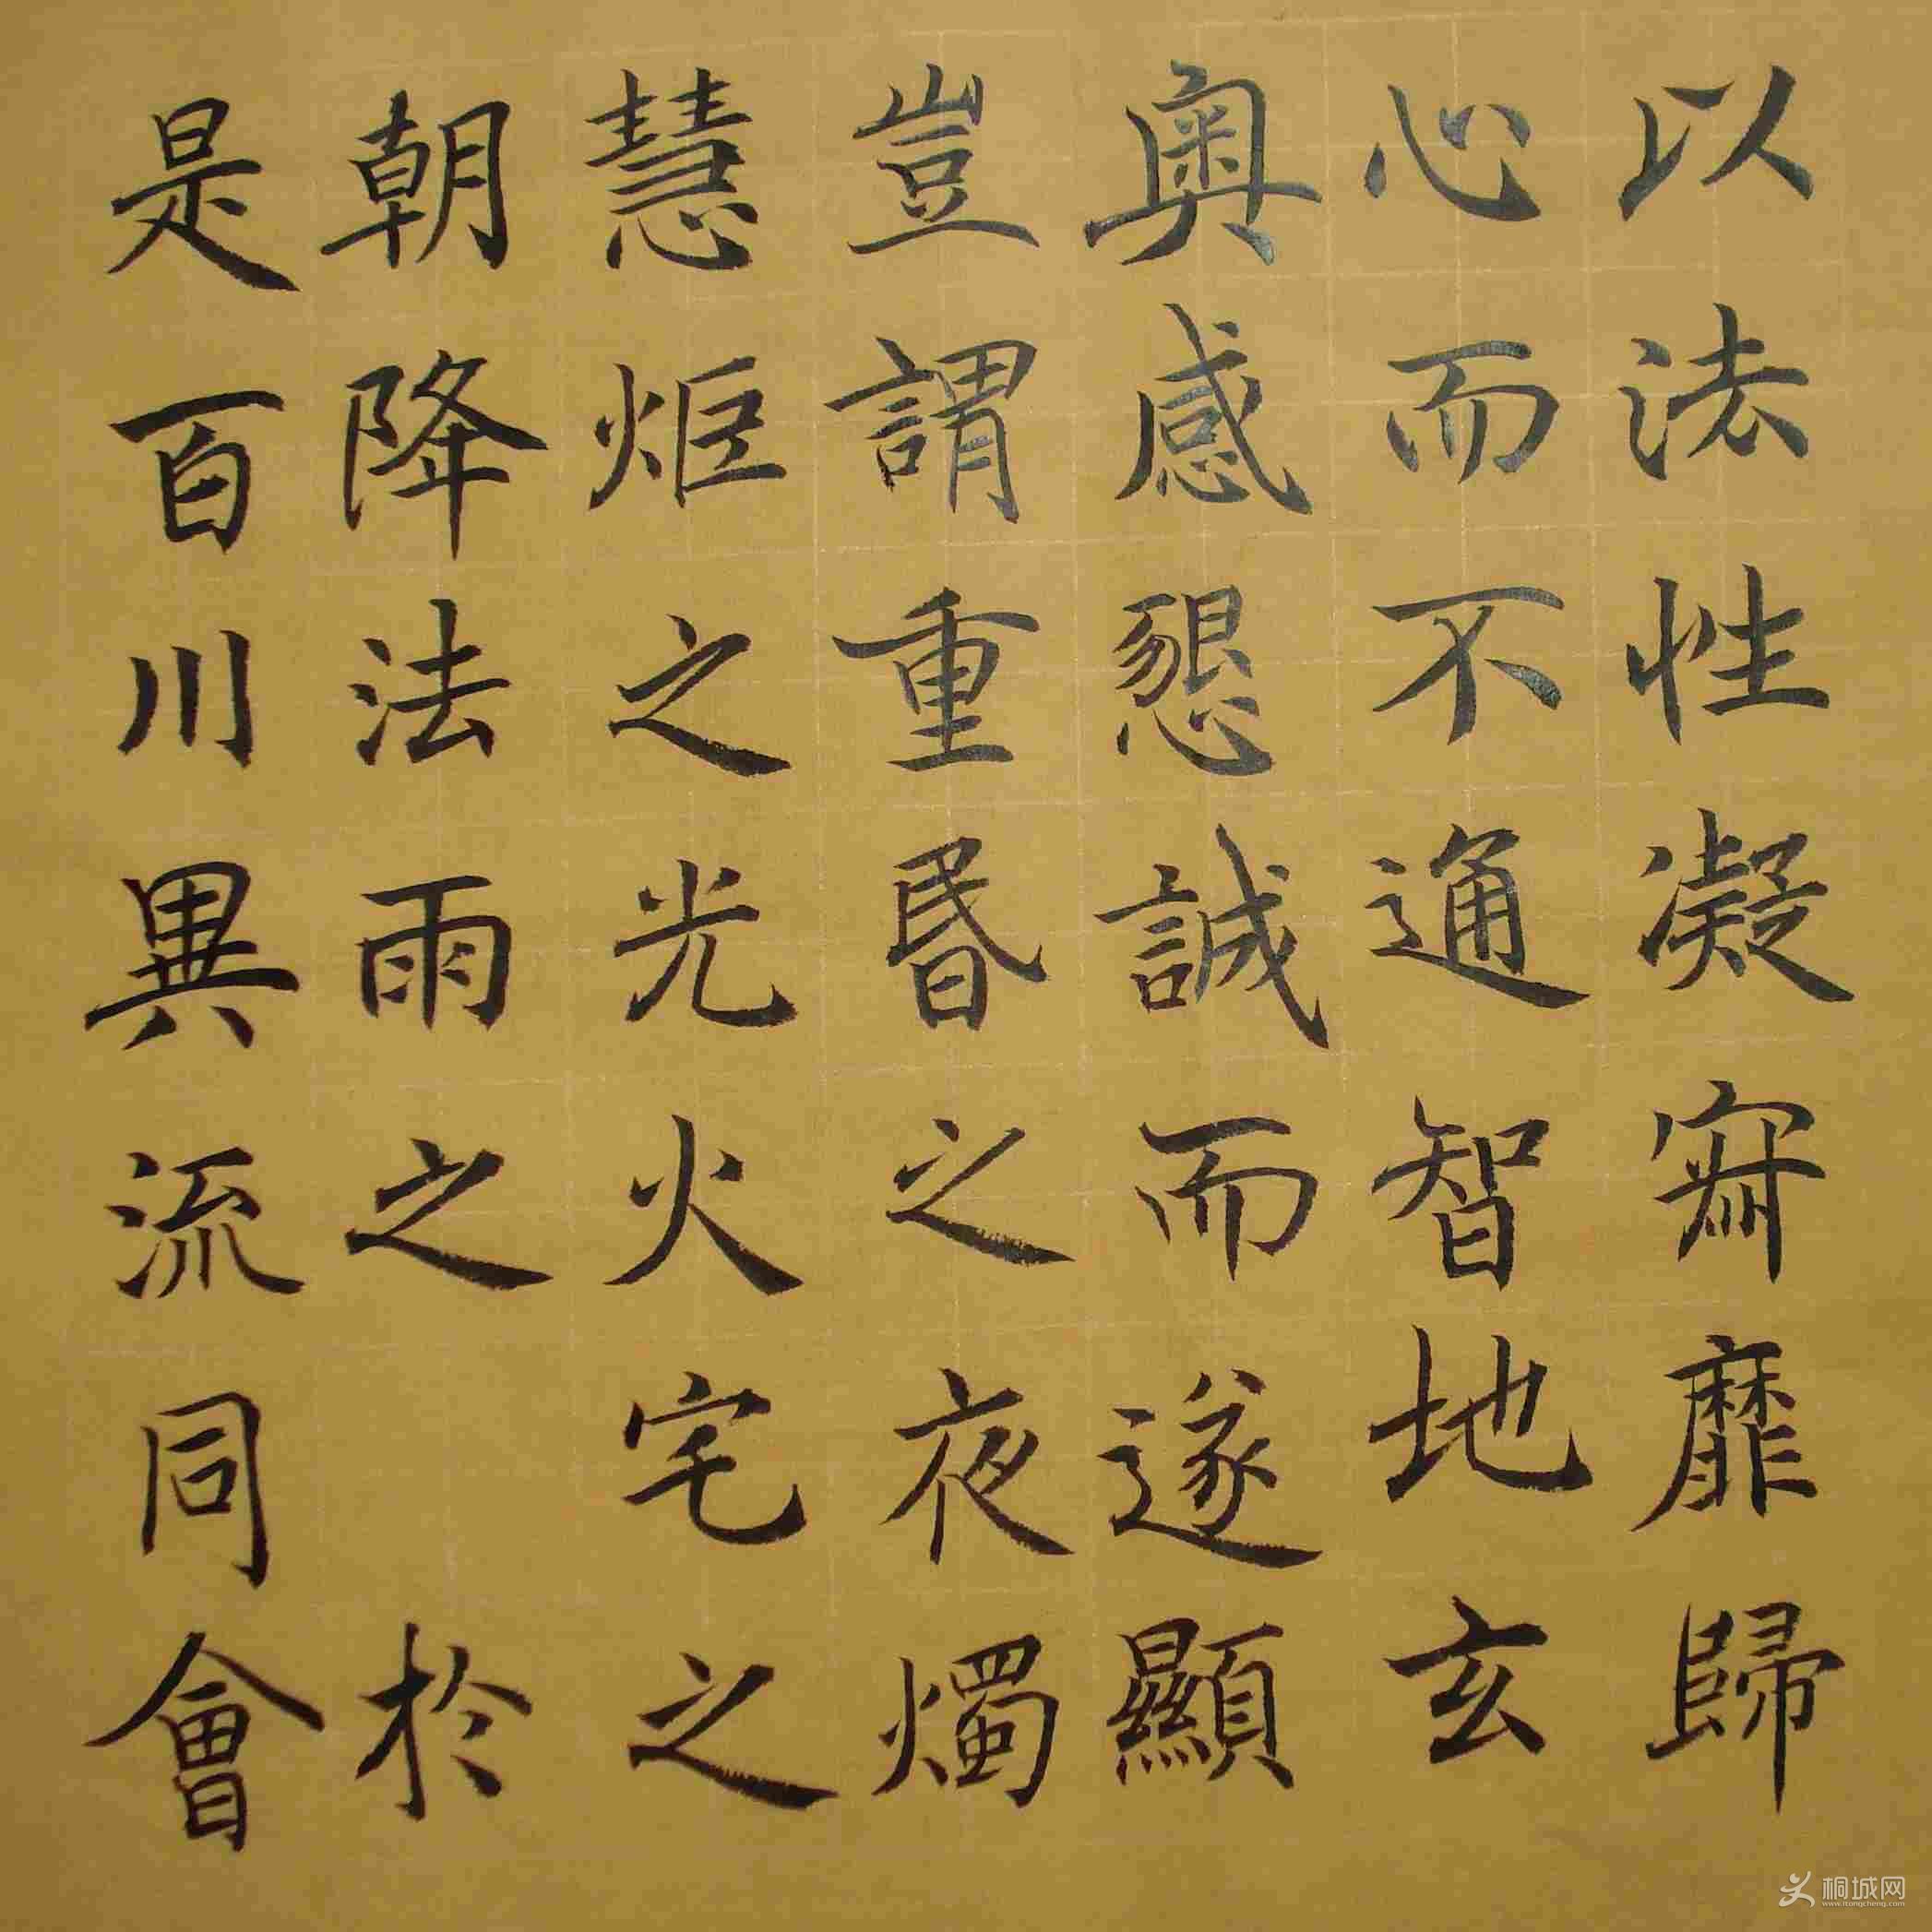 以法性凝寂靡歸
心而不通智地玄
奧感懇誠而遂顯
豈謂重昏之夜燭
慧炬之光火宅之
朝降法雨之 於
是百川異流同會
桐城网
www.itongcheng.com